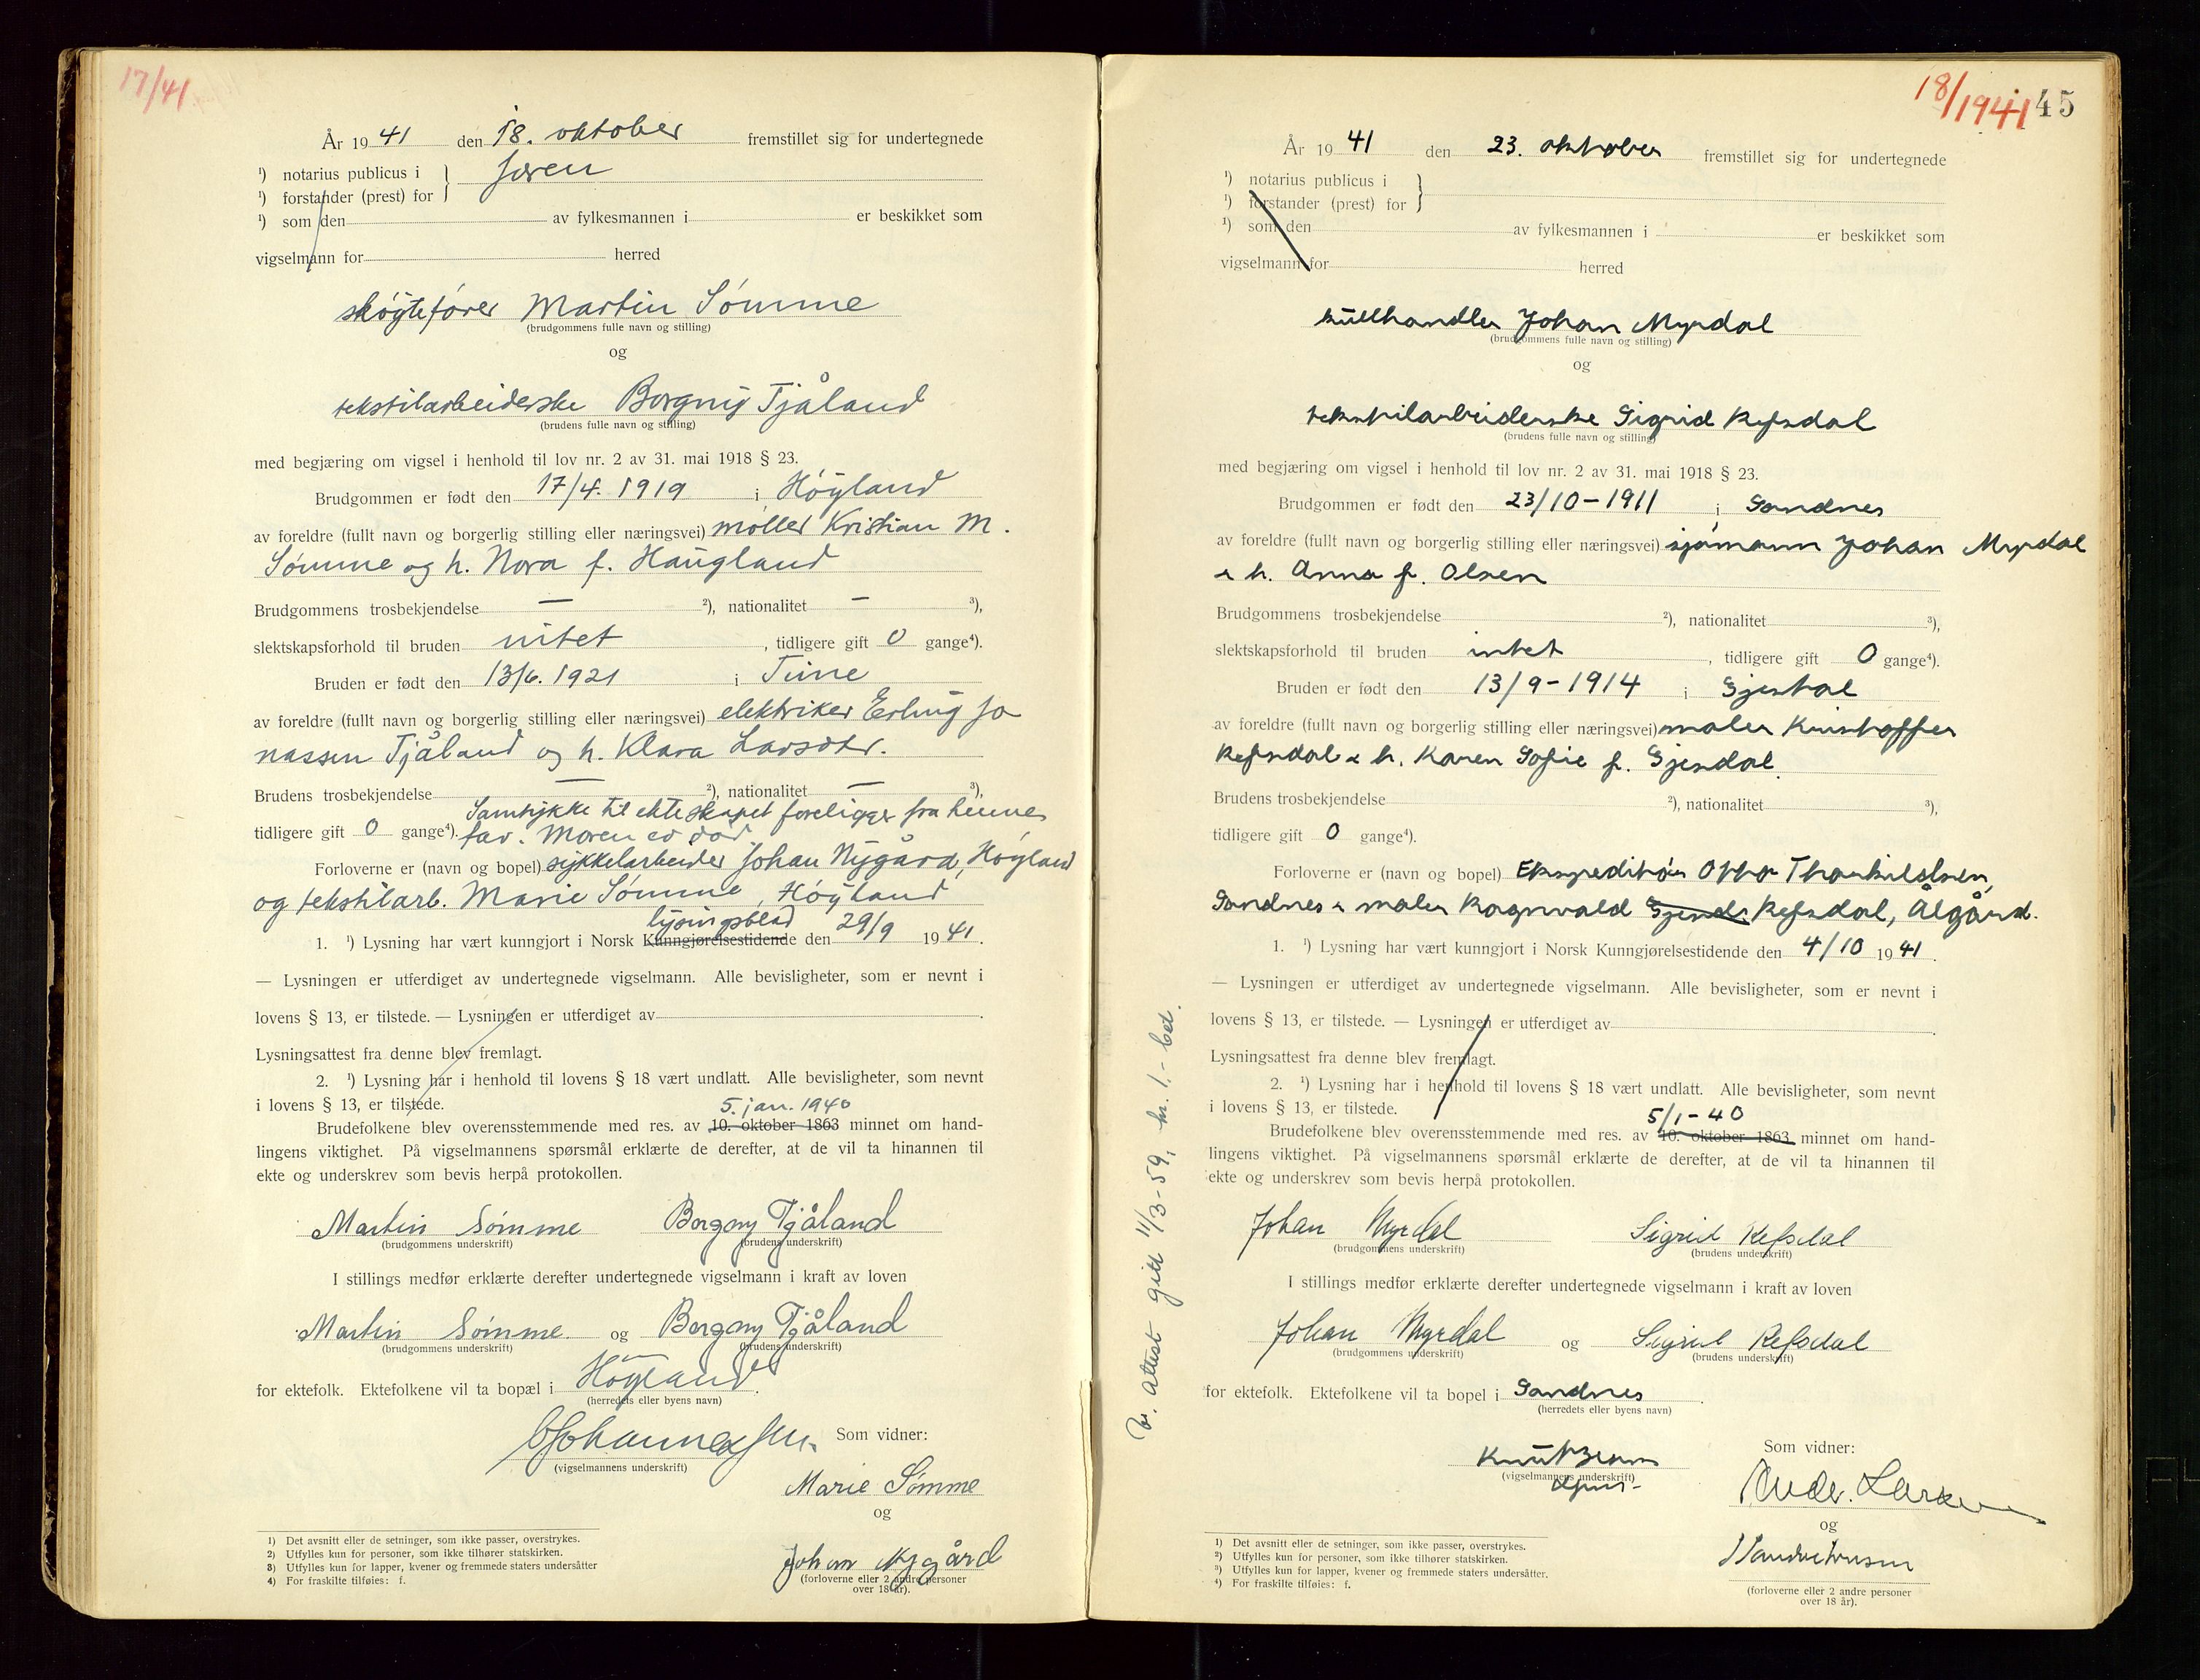 17/41
År 19 41 den 18. oktober fremstillet sig for undertegnede
¹) notarius publicus i } Jæren
¹) forstander (prest) for
¹) som den av fylkesmannen i er beskikket som
vigselmann for herred
skøytefører Martin Sømme
(brudgommens fulle navn og stilling)
og
tekstilarbeiderske Borgny Tjåland
(brudens fulle navn og stilling)
med begjæring om vigsel i henhold til lov nr. 2 av 31. mai 1918 § 23.
Brudgommen er født den 17/4. 1919 i Høyland
av foreldre (fullt navn og borgerlig stilling eller næringsvei) møller Kristian M.
Sømme og h. Nora f. Haugland
Brudgommens trosbekjendelse — ²), nationalitet — ³),
slektskapsforhold til bruden intet , tidligere gift 0 gange⁴).
Bruden er født den 13/6. 1921 i Time
av foreldre (fullt navn og borgerlig stilling eller næringsvei) elektriker Erling Jo
nassen Tjåland og h. Klara Larsdtr.
Brudens trosbekjendelse — ²), nationalitet — ³),
Samtykke til ekteskapet foreligger fra hennes
tidligere gift 0 gange⁴). far. Moren er død
Forloverne er (navn og bopel) sykkelarbeider Johan Nygård, Høyland
og tekstilarb. Marie Sømme, Høyland
lysingsblad
1. ¹) Lysning har vært kunngjort i Norsk Kunngjørelsestidende den 29/9 19 41.
— Lysningen er utferdiget av undertegnede vigselmann. Alle bevisligheter, som er nevnt i
lovens § 13, er tilstede. — Lysningen er utferdiget av .
Lysningsattest fra denne blev fremlagt.
2. ¹) Lysning har i henhold til lovens § 18 vært undlatt. Alle bevisligheter, som nevnt
i lovens § 13, er tilstede.
5. jan. 1940
Brudefolkene blev overensstemmende med res. av 10. oktober 1863 minnet om hand-
lingens viktighet. På vigselmannens spørsmål erklærte de derefter, at de vil ta hinannen til
ekte og underskrev som bevis herpå protokollen.
Martin Sømme Borgny Tjåland
(brudgommens underskrift) (brudens underskrift)
I stillings medfør erklærte derefter undertegnede vigselmann i kraft av loven
Martin Sømme og Borgny Tjåland
(brudgommens underskrift) (brudens underskrift)
for ektefolk. Ektefolkene vil ta bopæl i Høyland .
(herredets eller byens navn)
Johannessen. Som vidner:
(vigselmannens underskrift)
Marie Sømme
og
Johan Nygård
(forloverne eller 2 andre personer
over 18 år).
1) Det avsnitt eller de setninger, som ikke passer, overstrykes.
2) Utfylles kun for personer, som ikke tilhører statskirken.
3) Utfylles kun for lapper, kvener og fremmede staters undersåtter
4) For fraskilte tilføies: f.
18/1941 45
År 19 41 den 23. oktober fremstillet sig for undertegnede
¹) notarius publicus i }
¹) forstander (prest) for
¹) som den av fylkesmannen i er beskikket som
vigselmann for herred
kullhandler Johan Myrdal
(brudgommens fulle navn og stilling)
og
tekstilarbeiderske Sigrid Refsdal
(brudens fulle navn og stilling)
med begjæring om vigsel i henhold til lov nr. 2 av 31. mai 1918 § 23.
Brudgommen er født den 23/10 - 1911 i Sandnes
av foreldre (fullt navn og borgerlig stilling eller næringsvei) sjømann Johan Myrdal
& h. Anna f. Olsen
Brudgommens trosbekjendelse ²), nationalitet ³),
slektskapsforhold til bruden intet , tidligere gift 0 gange⁴).
Bruden er født den 13/9 - 1914 i Gjesdal
av foreldre (fullt navn og borgerlig stilling eller næringsvei) maler Kristoffer
Refsdal & h. Karen Sofie f. Gjesdal
Brudens trosbekjendelse ²), nationalitet ³),
tidligere gift 0 gange⁴).
Forloverne er (navn og bopel) Ekspeditør Otto Thorkildsen,
Sandnes & maler Ragnvald Gjesda Refsdal, Ålgård.
1. ¹) Lysning har vært kunngjort i Norsk Kunngjørelsestidende den 4/10 19 41.
— Lysningen er utferdiget av undertegnede vigselmann. Alle bevisligheter, som er nevnt i
lovens § 13, er tilstede. — Lysningen er utferdiget av .
Lysningsattest fra denne blev fremlagt.
2. ¹) Lysning har i henhold til lovens § 18 vært undlatt. Alle bevisligheter, som nevnt
i lovens § 13, er tilstede.
5/1 - 40
Brudefolkene blev overensstemmende med res. av 10. oktober 1863 minnet om hand-
lingens viktighet. På vigselmannens spørsmål erklærte de derefter, at de vil ta hinannen til
ekte og underskrev som bevis herpå protokollen.
Johan Myrdal Sigrid Refsdal
(brudgommens underskrift) (brudens underskrift)
I stillings medfør erklærte derefter undertegnede vigselmann i kraft av loven
Johan Myrdal og Sigrid Refsdal
(brudgommens underskrift) (brudens underskrift)
for ektefolk. Ektefolkene vil ta bopel i Sandnes .
(herredets eller byens navn)
Knut Som vidner:
(vigselmannens underskrift)
Larsen
og
(forloverne eller 2 andre personer
over 18 år).
1) Det avsnitt eller de setninger, som ikke passer, overstrykes.
2) Utfylles kun for personer, som ikke tilhører statskirken.
3) Utfylles kun for lapper, kvener og fremmede staters undersåtter.
4) For fraskilte tilføies: f.
attest gitt 11/3-59, kr. 1,- bet.